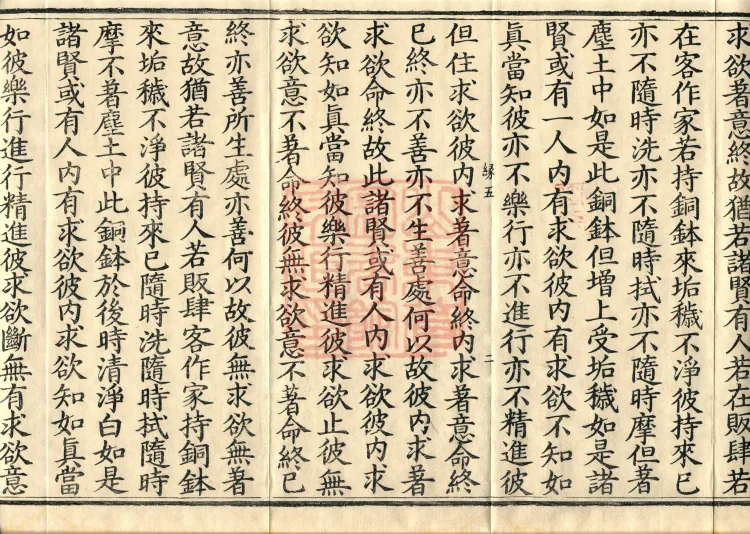 求欲著意終故猶若諸賢有人若在販肆若
在客作家若持銅鉢來垢穢不淨彼持來已
亦不隨時洗亦不隨時拭亦不隨時摩但著
塵土中如是此銅鉢但增上受垢穢如是諸
賢或有一人內有求欲彼內有求欲不知如
眞當知彼亦不樂行亦不進行亦不精進彼
縁五 二
但住求欲彼內求著意命終內求著意命終
已終亦不善亦不生善處何以故彼內求著
求欲命終故此諸賢或有人內求欲彼內求
欲知如眞當知彼樂行精進彼求欲止彼無
求欲意不著命終彼無求欲意不著命終已
終亦善所生處亦善何以故彼無求欲無著
意故猶若諸賢有人若販肆客作家持銅鉢
來垢穢不淨彼持來已隨時洗隨時拭隨時
摩不著塵土中此銅鉢於後時清淨白如是
諸賢或有人內有求欲彼內求欲知如眞當
如彼樂行進行精進彼求欲斷無有求欲意